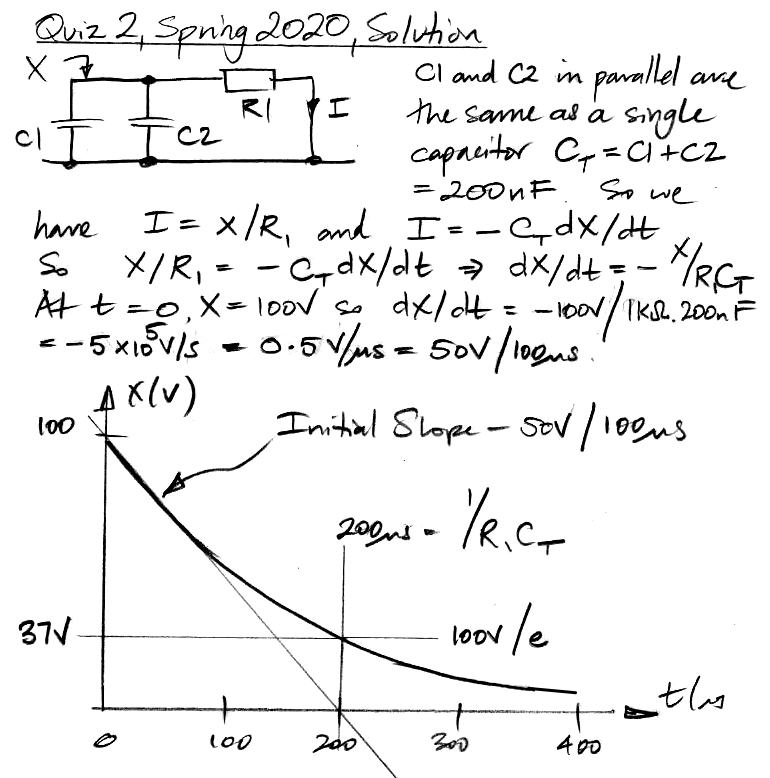 Quiz 2, Spring 2020, Solution
X
C1
C2
R1
I
C1 and C2 in parallel are
the same as a single
capacitor C_T = C1 + C2
= 200nF. So we
have I = X/R₁ and I = - C_T dX/dt
So X/R₁ = - C_T dX/dt ⇒ dX/dt = - X/R₁C_T
At t = 0, X = 100V so dX/dt = -100V/1KΩ.200nF
= -5×10⁵V/s = 0.5V/μs = 50V/100μs.
X(V)
100
Initial Slope - 50V/100μs
200μs - 1/R₁C_T
37V
100V/e
t(μs
0 100 200 300 400